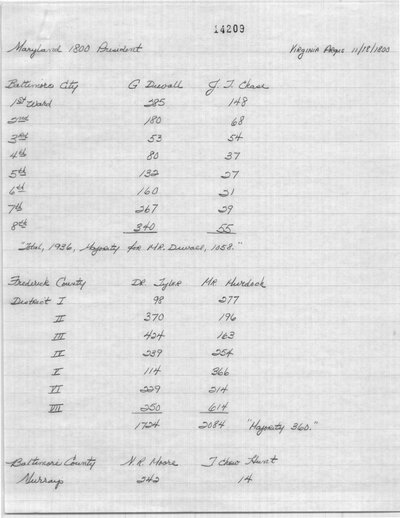 14209
Maryland 1800 President Virginia Argus 11/18/1800
Baltimore City G Duvall J. T. Chase
1st Ward 285 148
2nd 180 68
3rd 53 54
4th 80 37
5th 132 27
6th 160 21
7th 267 29
8th 340 55
"Total, 1936, Majority for MR. Duvall, 1058."
Frederick County DR. Tyler MR Murdock
District I 98 277
II 370 196
III 424 163
IV 239 254
V 114 366
VI 229 214
VII 250 614
1724 2084 "Majority 360."
Baltimore County N. R. Moore T Chew Hunt
Murray 242 14